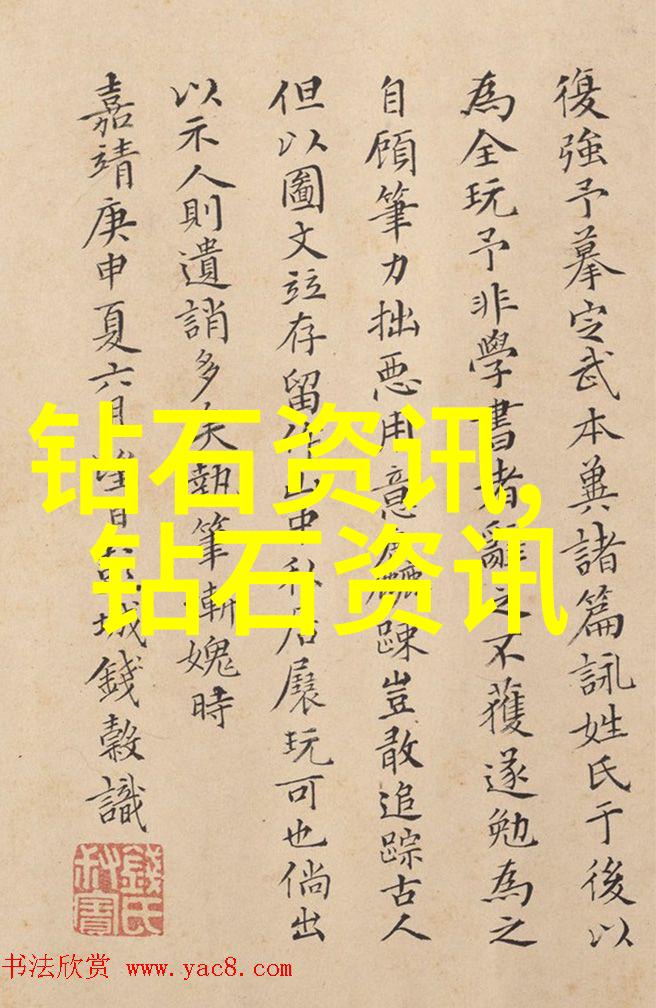 復強予摹定武本兼諸篇詠姓氏于後以
為全玩予非學書者辭之不獲遂勉為之
自顧筆力拙惡用意麤踈豈敢追踪古人
但以圖文竝存留作山中私居展玩可也倘出
以示人則遺誚多矣執筆慚媿時
嘉靖庚申夏六月日彭城錢榖識
錢氏叔寶
钻石资讯,
钻石资讯
书法欣赏 www.yac8.com